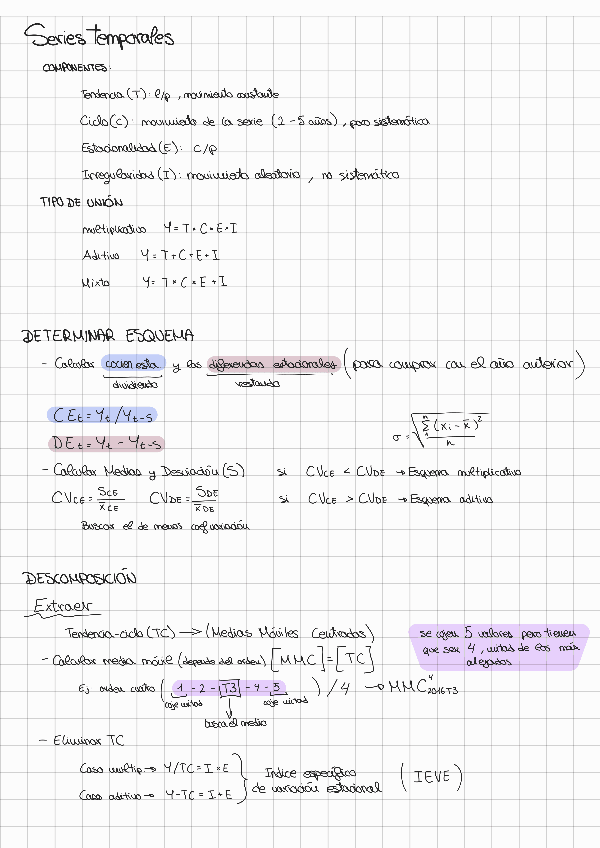 Series temporales
COMPONENTES:
Tendencia (T): l/p, movimiento constante
Ciclo (C): movimiento de la serie (2-5 años), poco sistemático
Estacionalidad (E): c/p
Irregularidad (I): movimiento aleatorio, no sistemático
TIPO DE UNIÓN
multiplicativo Y = T · C · E · I
Aditivo Y = T + C + E + I
Mixto Y = T * C * E + I
DETERMINAR ESQUEMA
- Calcular y las diferencias estacionales (para comprar con el año anterior)
dividiendo restando
CEt = Yt / Yt-s
DEt = Yt - Yt-s
σ = √ Σ (xi - x̄)² / n
- Calcular Medias y Desviación (S) si CVCE < CVDE → Esquema multiplicativo
CVCE = SCE / x̄CE CVDE = SDE / x̄DE si CVCE > CVDE → Esquema aditivo
Buscar el de menos coef variación
DESCOMPOSICIÓN
Extraer
Tendencia-ciclo (TC) → (Medias Móviles Centradas)
se cogen 5 valores pero tienen
que ser 4, mitad de los más
alejados
- Calcular media móvil (depende del orden) [MMC] = [TC]
Ej orden cuatro (1 - 2 - T3 - 4 - 5) / 4 → MMC⁴2016T3
coge mitad coge mitad
busca el medio
- Eliminar TC
Caso multip → Y/TC = I * E
Caso aditivo → Y - TC = I + E
Indice específico
de variación estacional (IEVE)